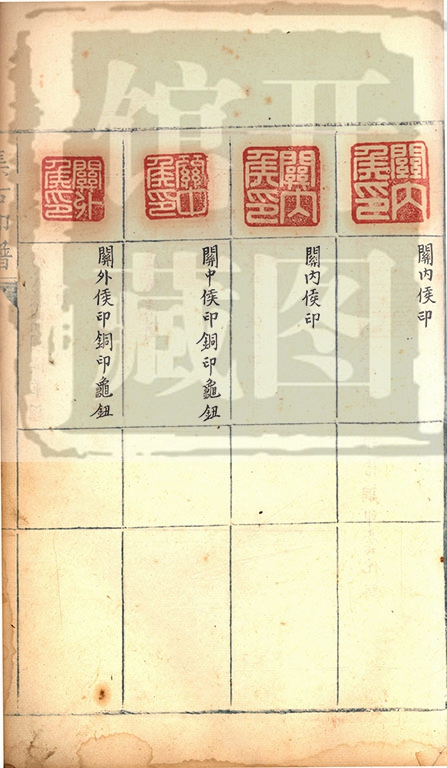 關内
侯印
關内侯印
關内
侯印
關内侯印
關中
侯印
關中侯印銅印龜鈕
關外
侯印
關外侯印銅印龜鈕